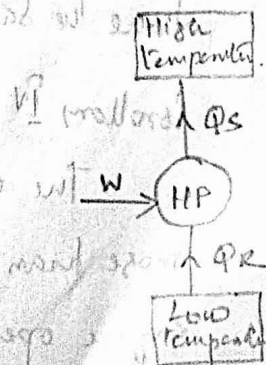 High
temperatu.
QS
W
HP
QR
Low
temperatu